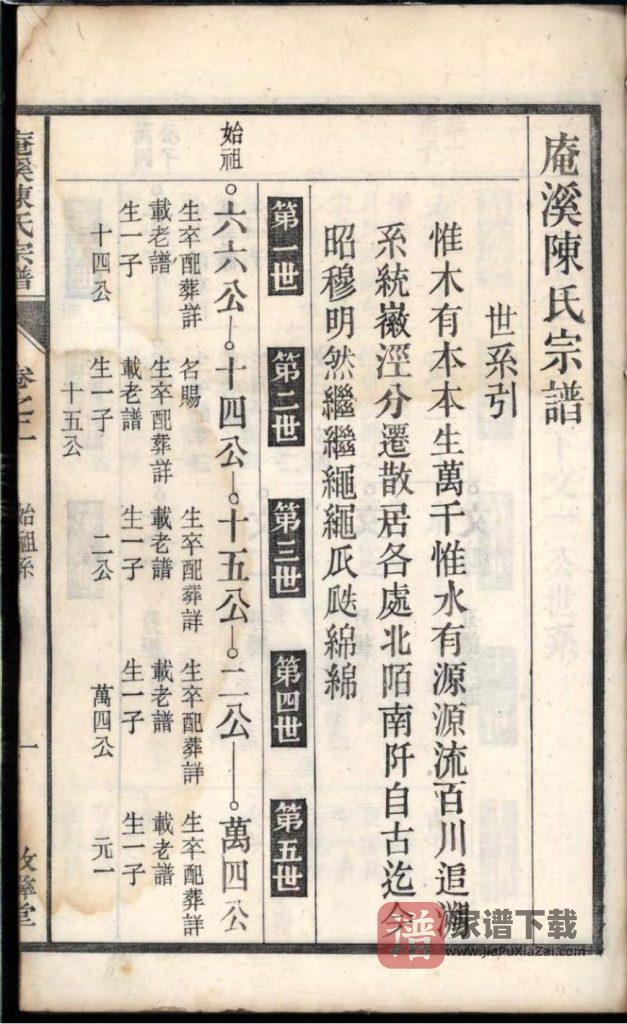 庵溪陳氏宗譜
世系引
惟木有本本生萬千惟水有源源流百川追溯
系統徽涇分遷散居各處北陌南阡自古迄今
昭穆明然繼繼繩繩瓜瓞綿綿
第一世 第二世 第三世 第四世 第五世
始祖 六六公 十四公 十五公 二公 萬四公
生卒配葬詳
載老譜
生一子
十四公
名賜
生卒配葬詳
載老譜
生一子
十五公
生卒配葬詳
載老譜
生一子
二公
生卒配葬詳
載老譜
生一子
萬四公
生卒配葬詳
載老譜
生一子
元一
庵溪陳氏宗譜 卷之二 始祖系 一
譜
家谱下载
www.JiaPuXiaZai.com